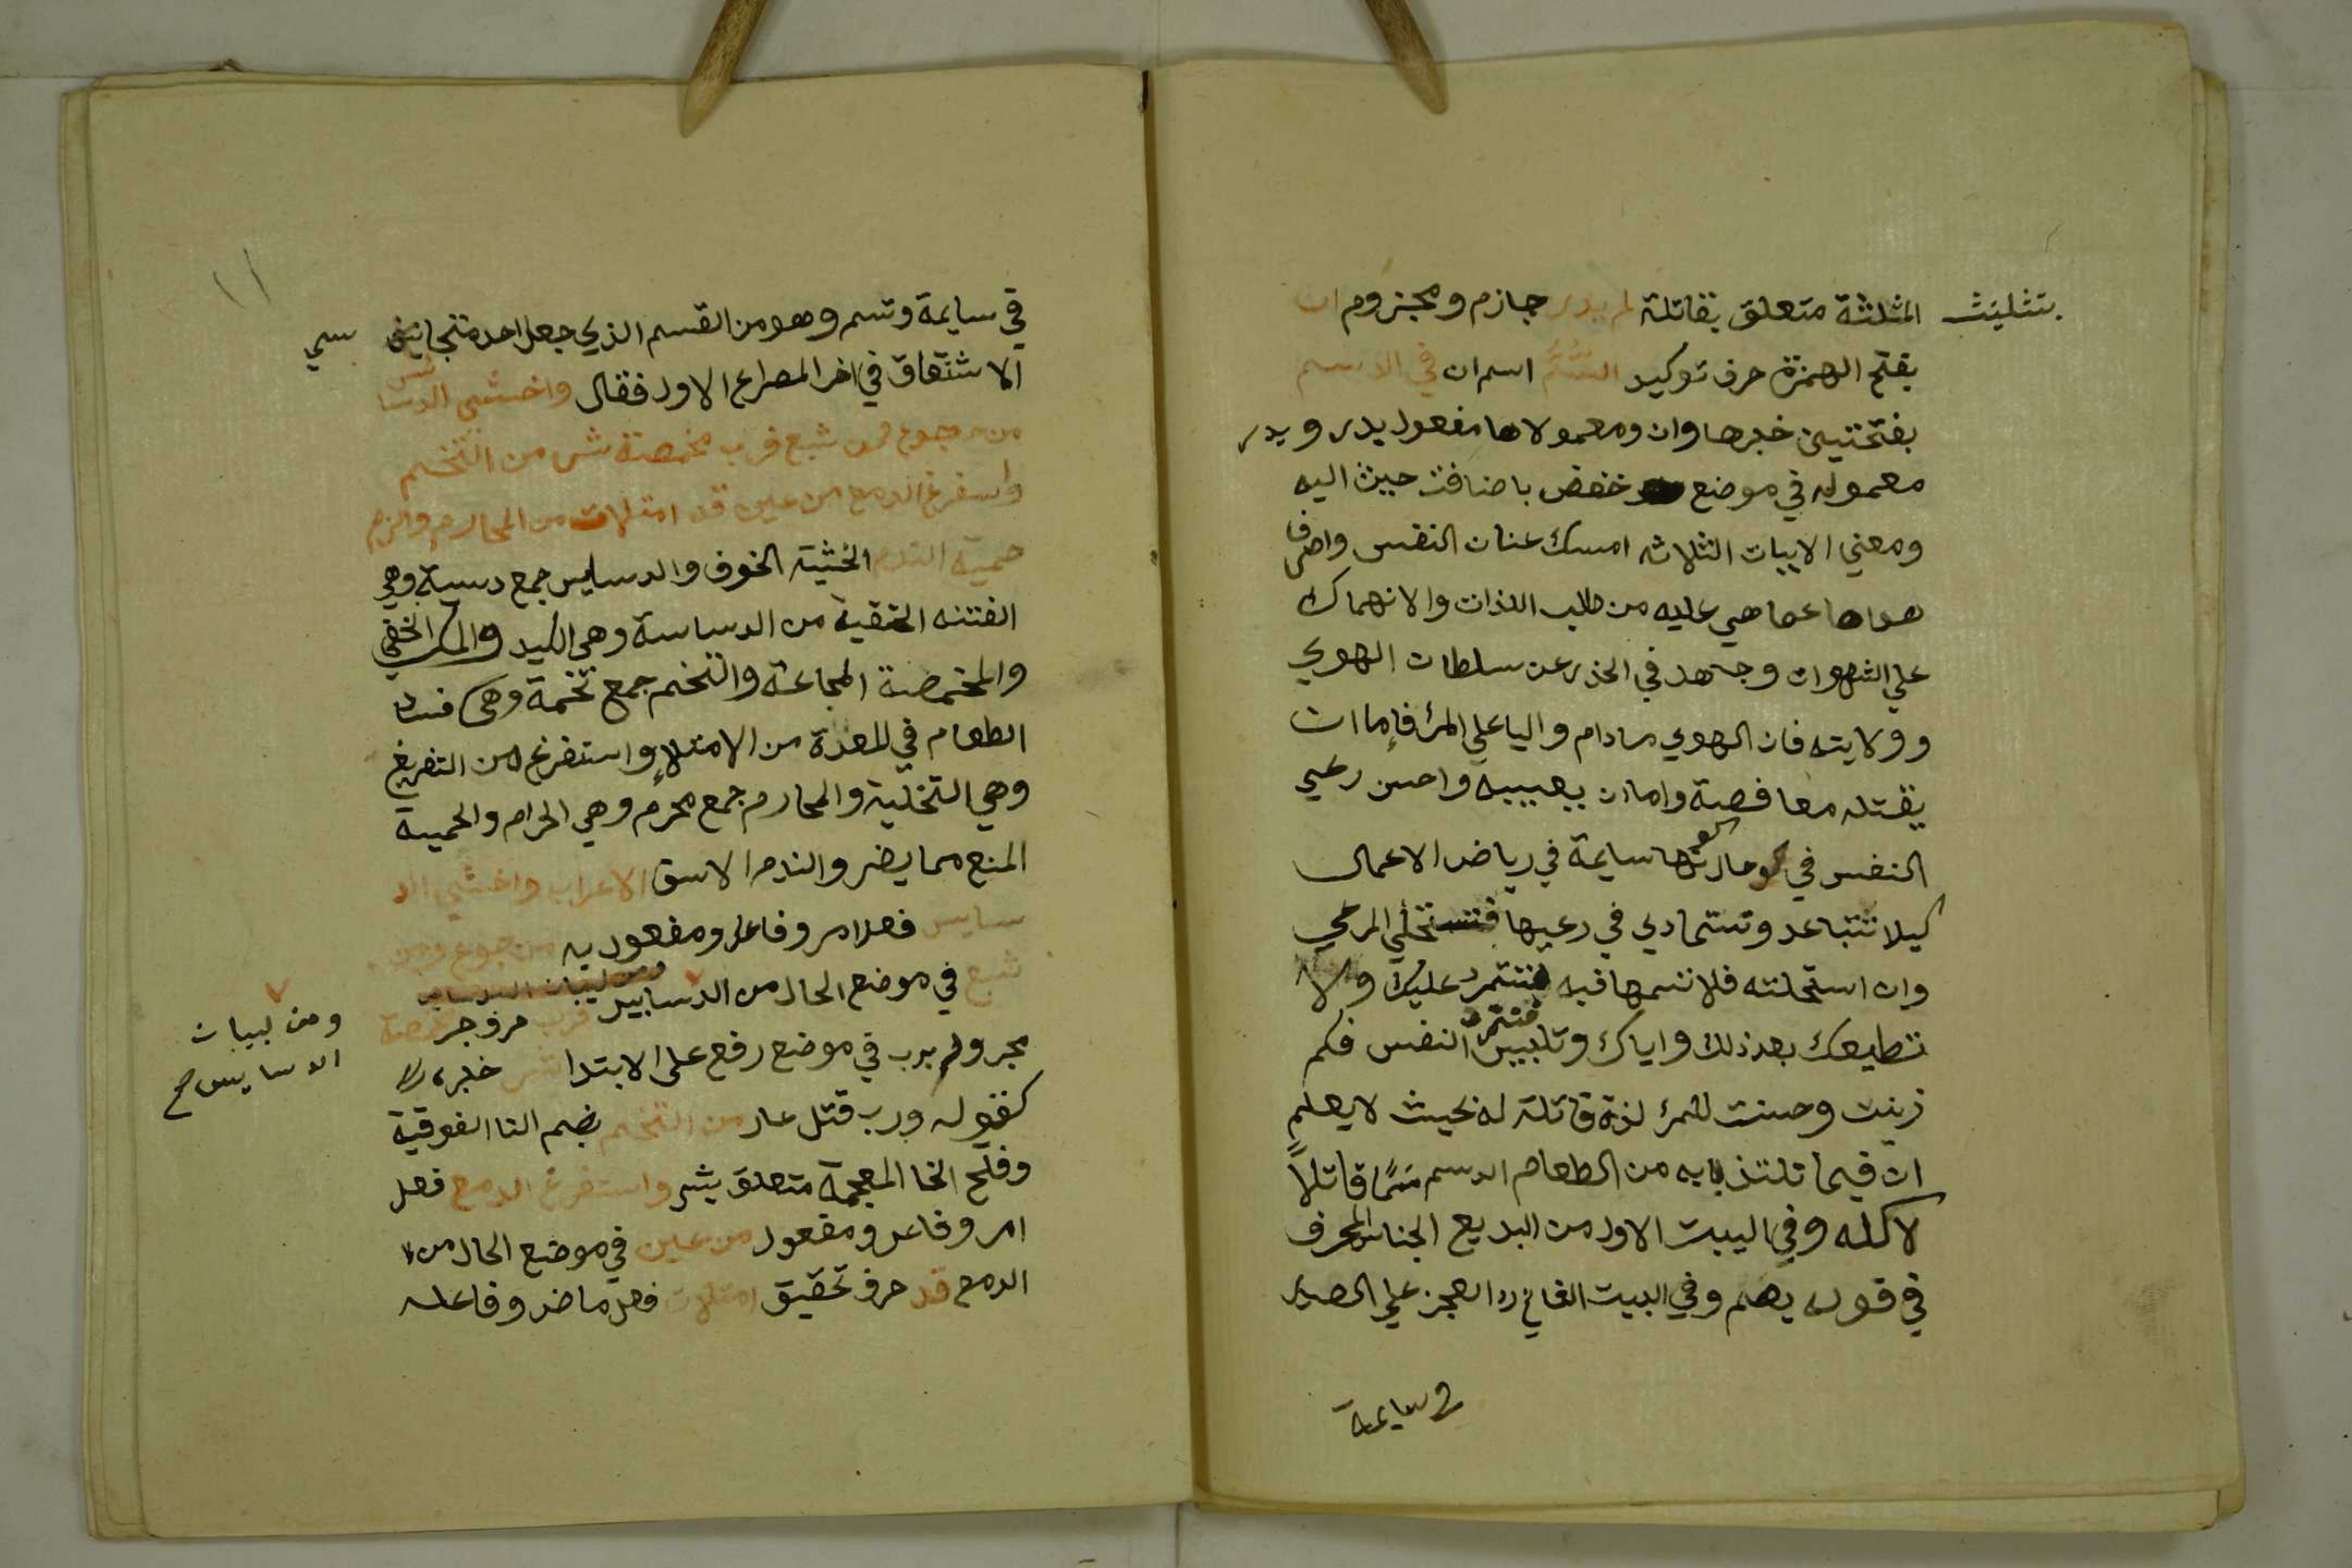 بتثليث المثلثة متعلق بقاتلة لم يدر جازم ومجزوم ان
بفتح الهمزة حرف توكيد السُّمَّ اسم ان في الدسم
بفتحتين خبرها وان ومعمولاها مفعول يدر ويدر
معموله في موضع خفض باضافة حيث اليه
ومعني الابيات الثلاثه امسك عنان النفس واصرف
هواها عما هي عليه من طلب اللذات والانهماك
علي الشهوات وجتهد في الحذر عن سلطان الهوي
وولايته فان الهوي مادام واليا علي المرئ فإما ان
يقتله معافصة واما ان يعيبه واحسن رعي
النفس في كونها سايمة في رياض الاعمال
كيلا تتباعد وتتمادي في رعيها فتستحلي المرعي
وان استحلته فلا تسمها فيه فتتمرد عليك ولا
تطيعك بعد ذلك واياك وتلبيس النفس فكم
زينت وحسنت للمرئ لذة قاتلة له بحيث لا يعلم
ان فيما تلتذ به من الطعام الدسم سمًّا قاتلاً
لاكله وفي البيت الاول من البديع الجناس المحرف
في قوله يصم وفي البيت الثاني رد العجز علي الصدر
في سايمة
١١
في سايمة وتسم وهو من القسم الذي جعل احد متجانسي
الاشتقاق في اخر المصراع الاول فقال واخشي الدسا
من جوع ومن شبع فرب مخمصة شر من التخم
واستفرغ الدمع من عين قد امتلات من المحارم والزم
حمية الندم الخشية الخوف والدسايس جمع دسيسة وهي
الفتنه الخفية من الدساسة وهي الكيد والمكر الخفي
والمخمصة المجاعة والتخم جمع تخمة وهي فساد
الطعام في المعدة من الامتلاء واستفرغ من التفريغ
وهي التخلية والمحارم جمع محرم وهي الحرام والحمية
المنع مما يضر والندم الاسق الاعراب واخشي الد
سايس فعل امر وفاعل ومفعول به من جوع ومن
شبع في موضع الحال من الدسايس فرب حرف جر مخمصة
ومن لبيات
الدسايس صح
مجرور برب في موضع رفع علي الابتدا شر خبره
كقوله ورب قتل عار من التخم بضم التا الفوقية
وفتح الخا المعجمة متعلق بشر واستفرغ الدمع فعل
امر وفاعل ومفعول من عين في موضع الحال من
الدمع قد حرف تحقيق امتلات فعل ماض وفاعله